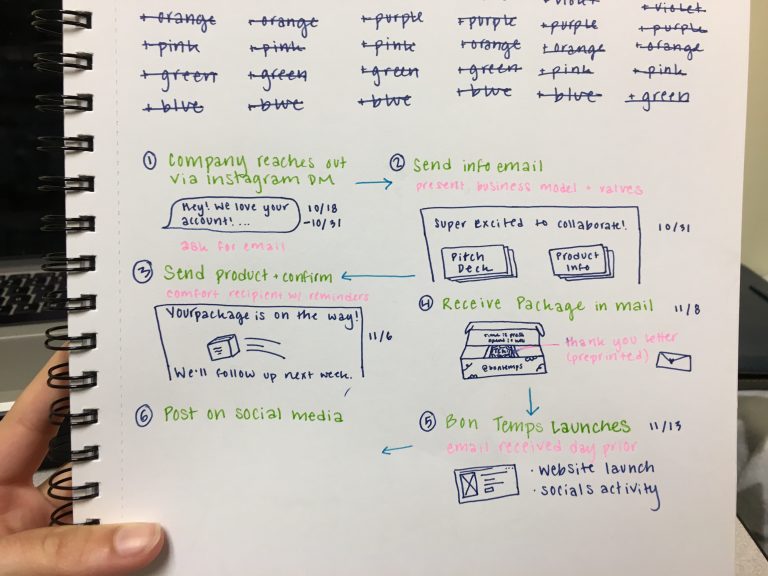 + violet + violet
+ orange + orange + purple + purple + orange + purple
+ pink + pink + pink + orange + orange + orange
+ green + green + green + green + pink + pink
+ blue + blue + blue + blue + blue + green
① Company reaches out
via instagram DM
Hey! We love your
account! ...
10/18
-10/31
ask for email
② Send info email
present business model + values
Super excited to collaborate!
10/31
Pitch
Deck
Product
Info
③ Send product + confirm
comfort recipient w/ reminders
Your package is on the way!
We'll follow up next week.
11/6
④ Receive Package in mail 11/8
@bontemps
thank you letter
(preprinted)
⑤ Bon Temps Launches 11/13
email received day prior
· website launch
· socials activity
⑥ Post on social media